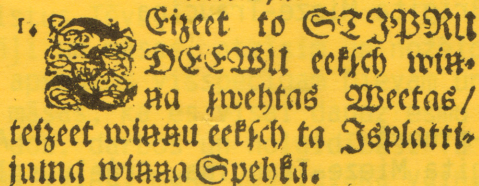 1. TEizeet to STJPRU
DEEWU eekſch win⸗
na ſwehtas Weetas/
teizeet winnu eekſch ta Jsplatti⸗
juma winna Spehka.